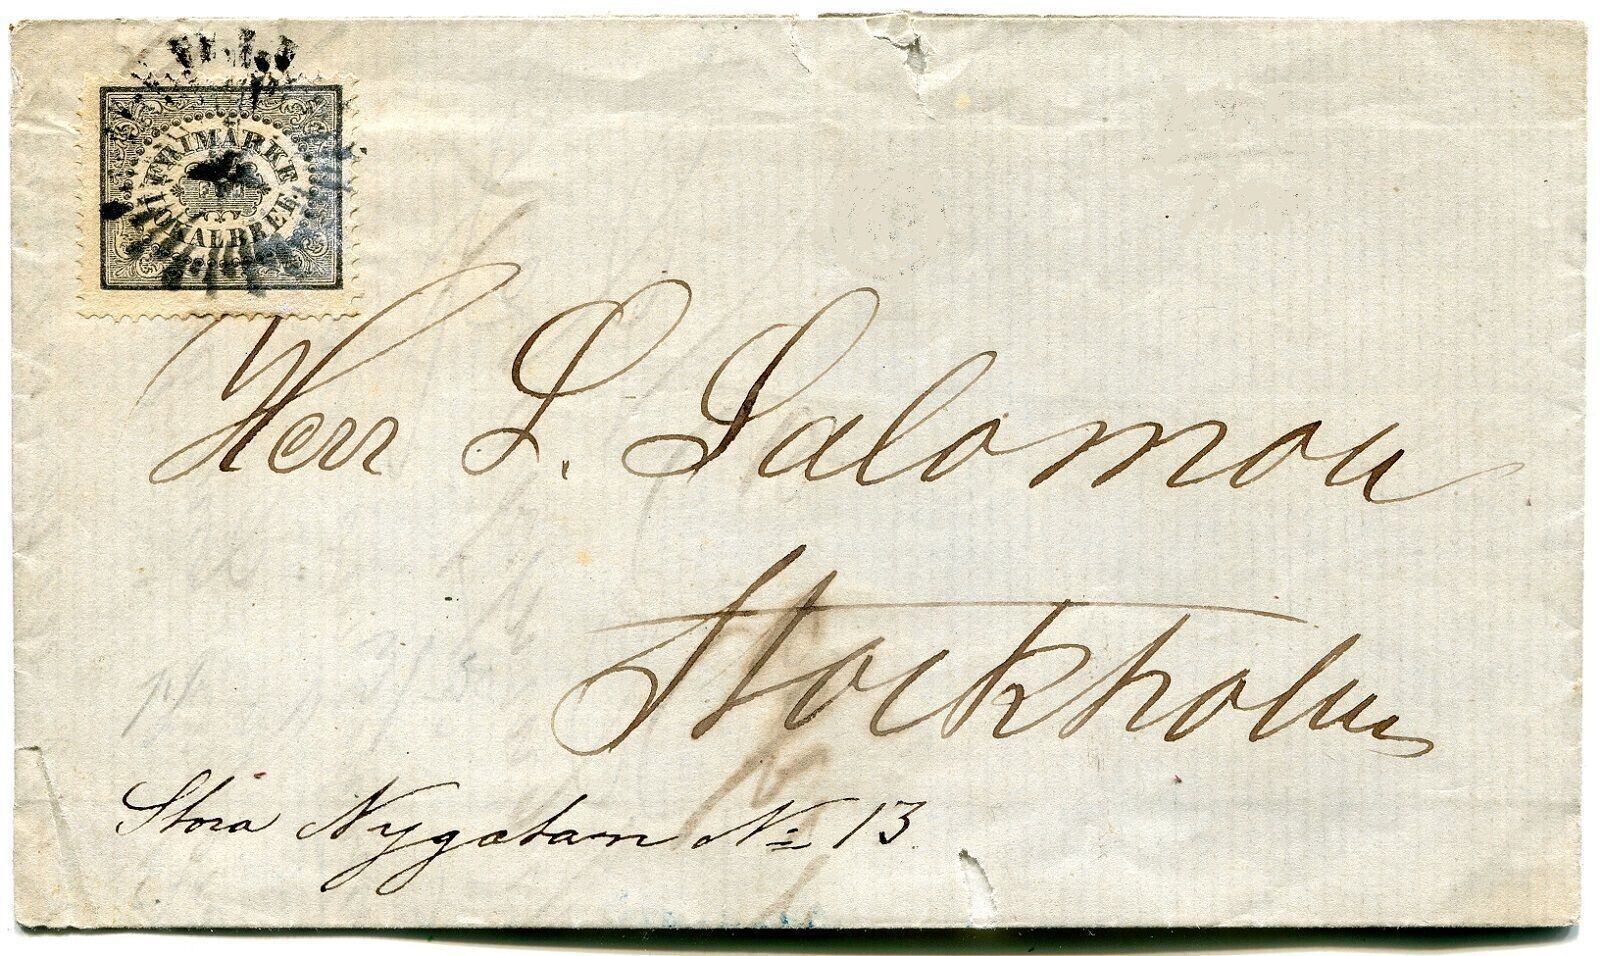 FRIMÄRKE
LOKALBREF.
Herr L. Salomon
Stockholm
Stora Nygatan No 13